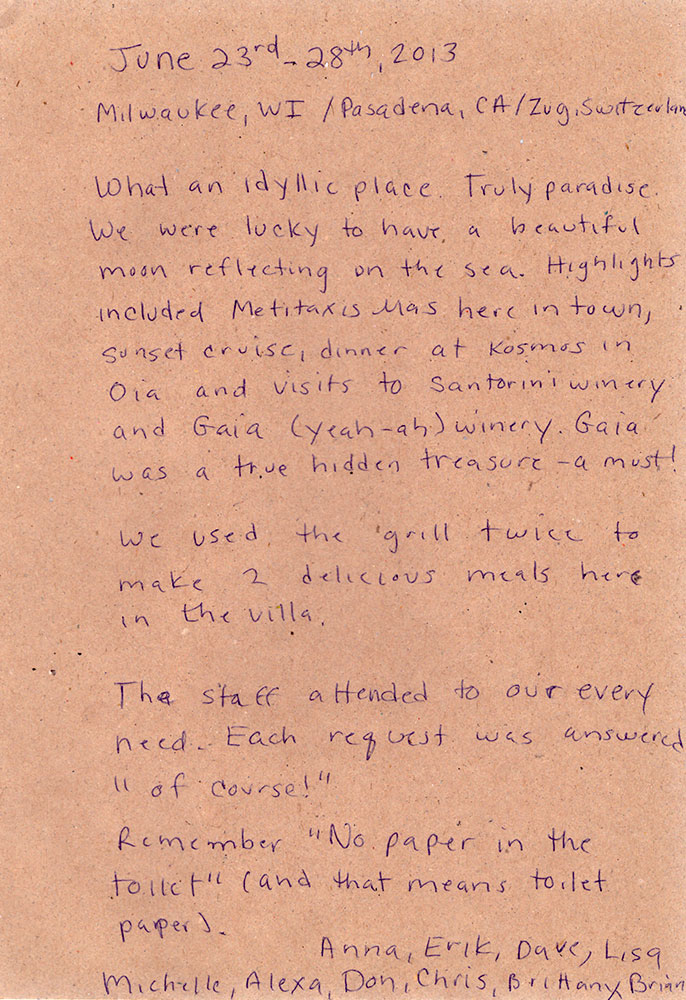 June 23rd - 28th, 2013
Milwaukee, WI / Pasadena, CA / Zug, Switzerland
What an idyllic place. Truly paradise.
We were lucky to have a beautiful
moon reflecting on the sea. Highlights
included Metitaxis Mas here in town,
sunset cruise, dinner at Kosmos in
Oia and visits to Santorini winery
and Gaia (yeah-ah) winery. Gaia
was a true hidden treasure - a must!
We used the grill twice to
make 2 delicious meals here
in the villa.
The staff attended to our every
need. Each request was answered
"of course!"
Remember "No paper in the
toilet" (and that means toilet
paper).
Anna, Erik, Dave, Lisa
Michelle, Alexa, Don, Chris, Brittany, Brian